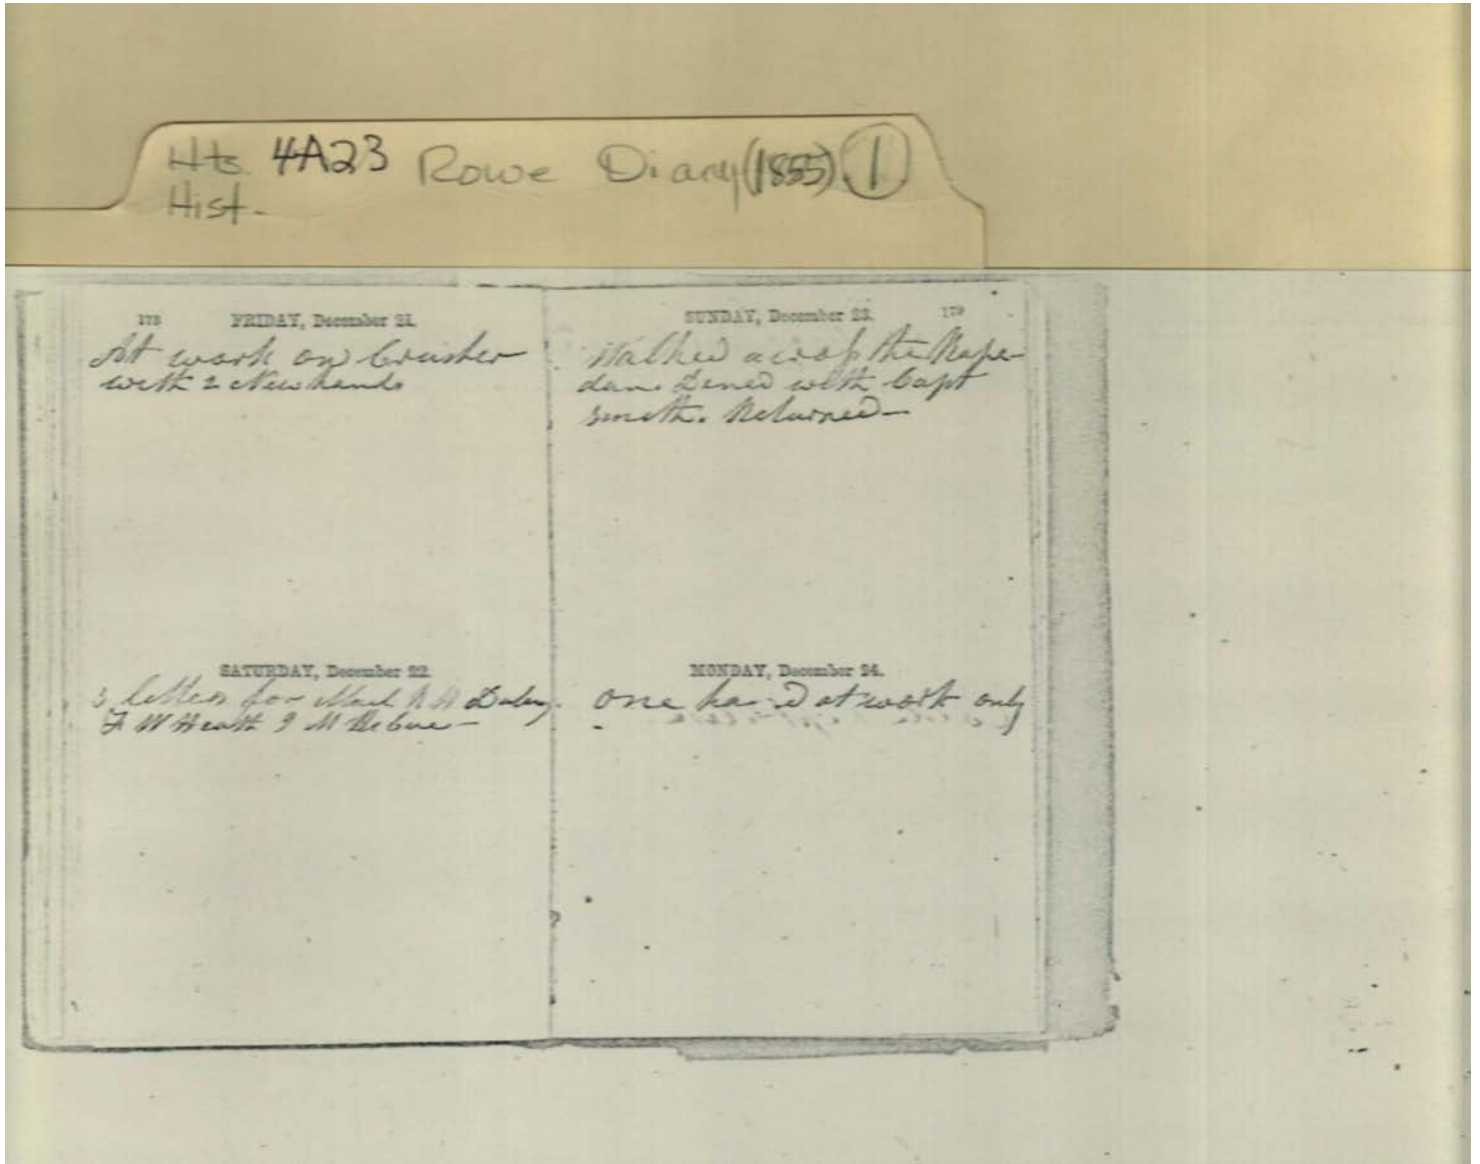 Hts. 4A23 Rowe Diary (1855) 1
Hist.
178
FRIDAY, December 21.
At work on Crusher
with 2 New hands
SATURDAY, December 22.
3 letters for
F W Heath
SUNDAY, December 23.
179
Walked across the Rape-
dan. Dined with Capt
Smith. Returned—
MONDAY, December 24.
one hand at work only